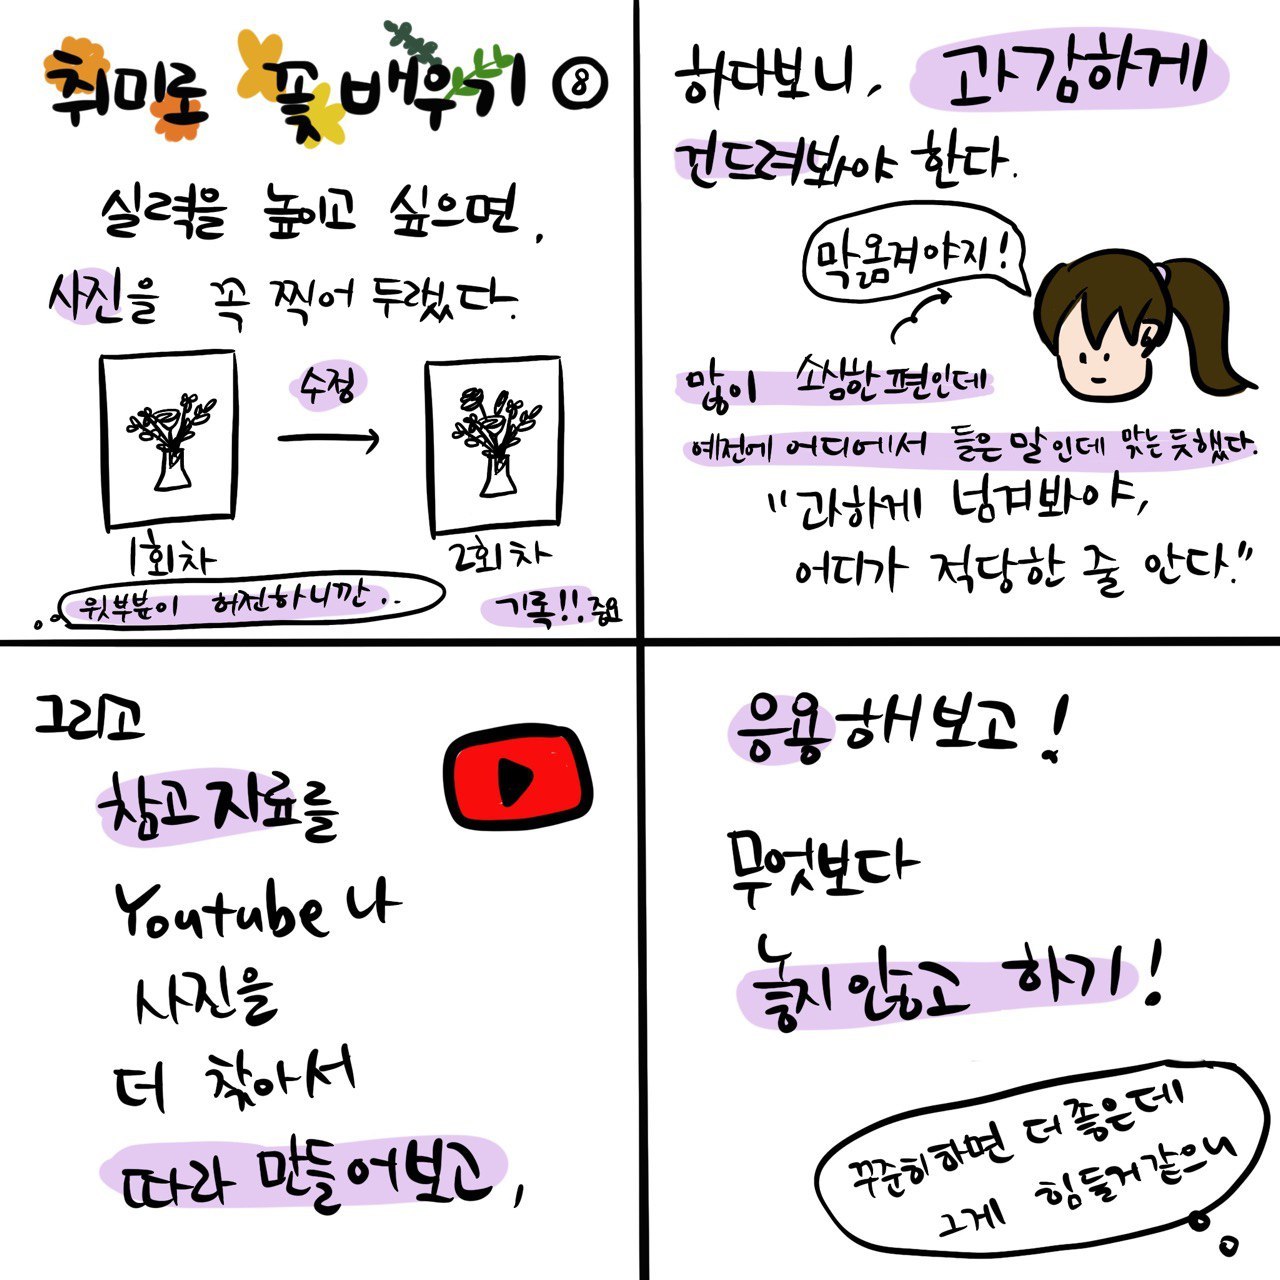 취미로 꽃 배우기 ⑧
실력을 높이고 싶으면,
사진을 꼭 찍어 두랬다.
수정
1회차
2회차
윗부분이 허전하니깐..
기록!! 중요
하다보니, 과감하게
건드려봐야 한다.
막 옮겨야지!
많이 소심한 편인데
예전에 어디에서 들은 말인데 맞는 듯했다.
"과하게 넘겨봐야,
어디가 적당한 줄 안다."
그리고
참고 자료를
Youtube나
사진을
더 찾아서
따라 만들어보고,
응용해보고!
무엇보다
놓지 않고 하기!
꾸준히하면 더 좋은데
그게 힘들거 같으니